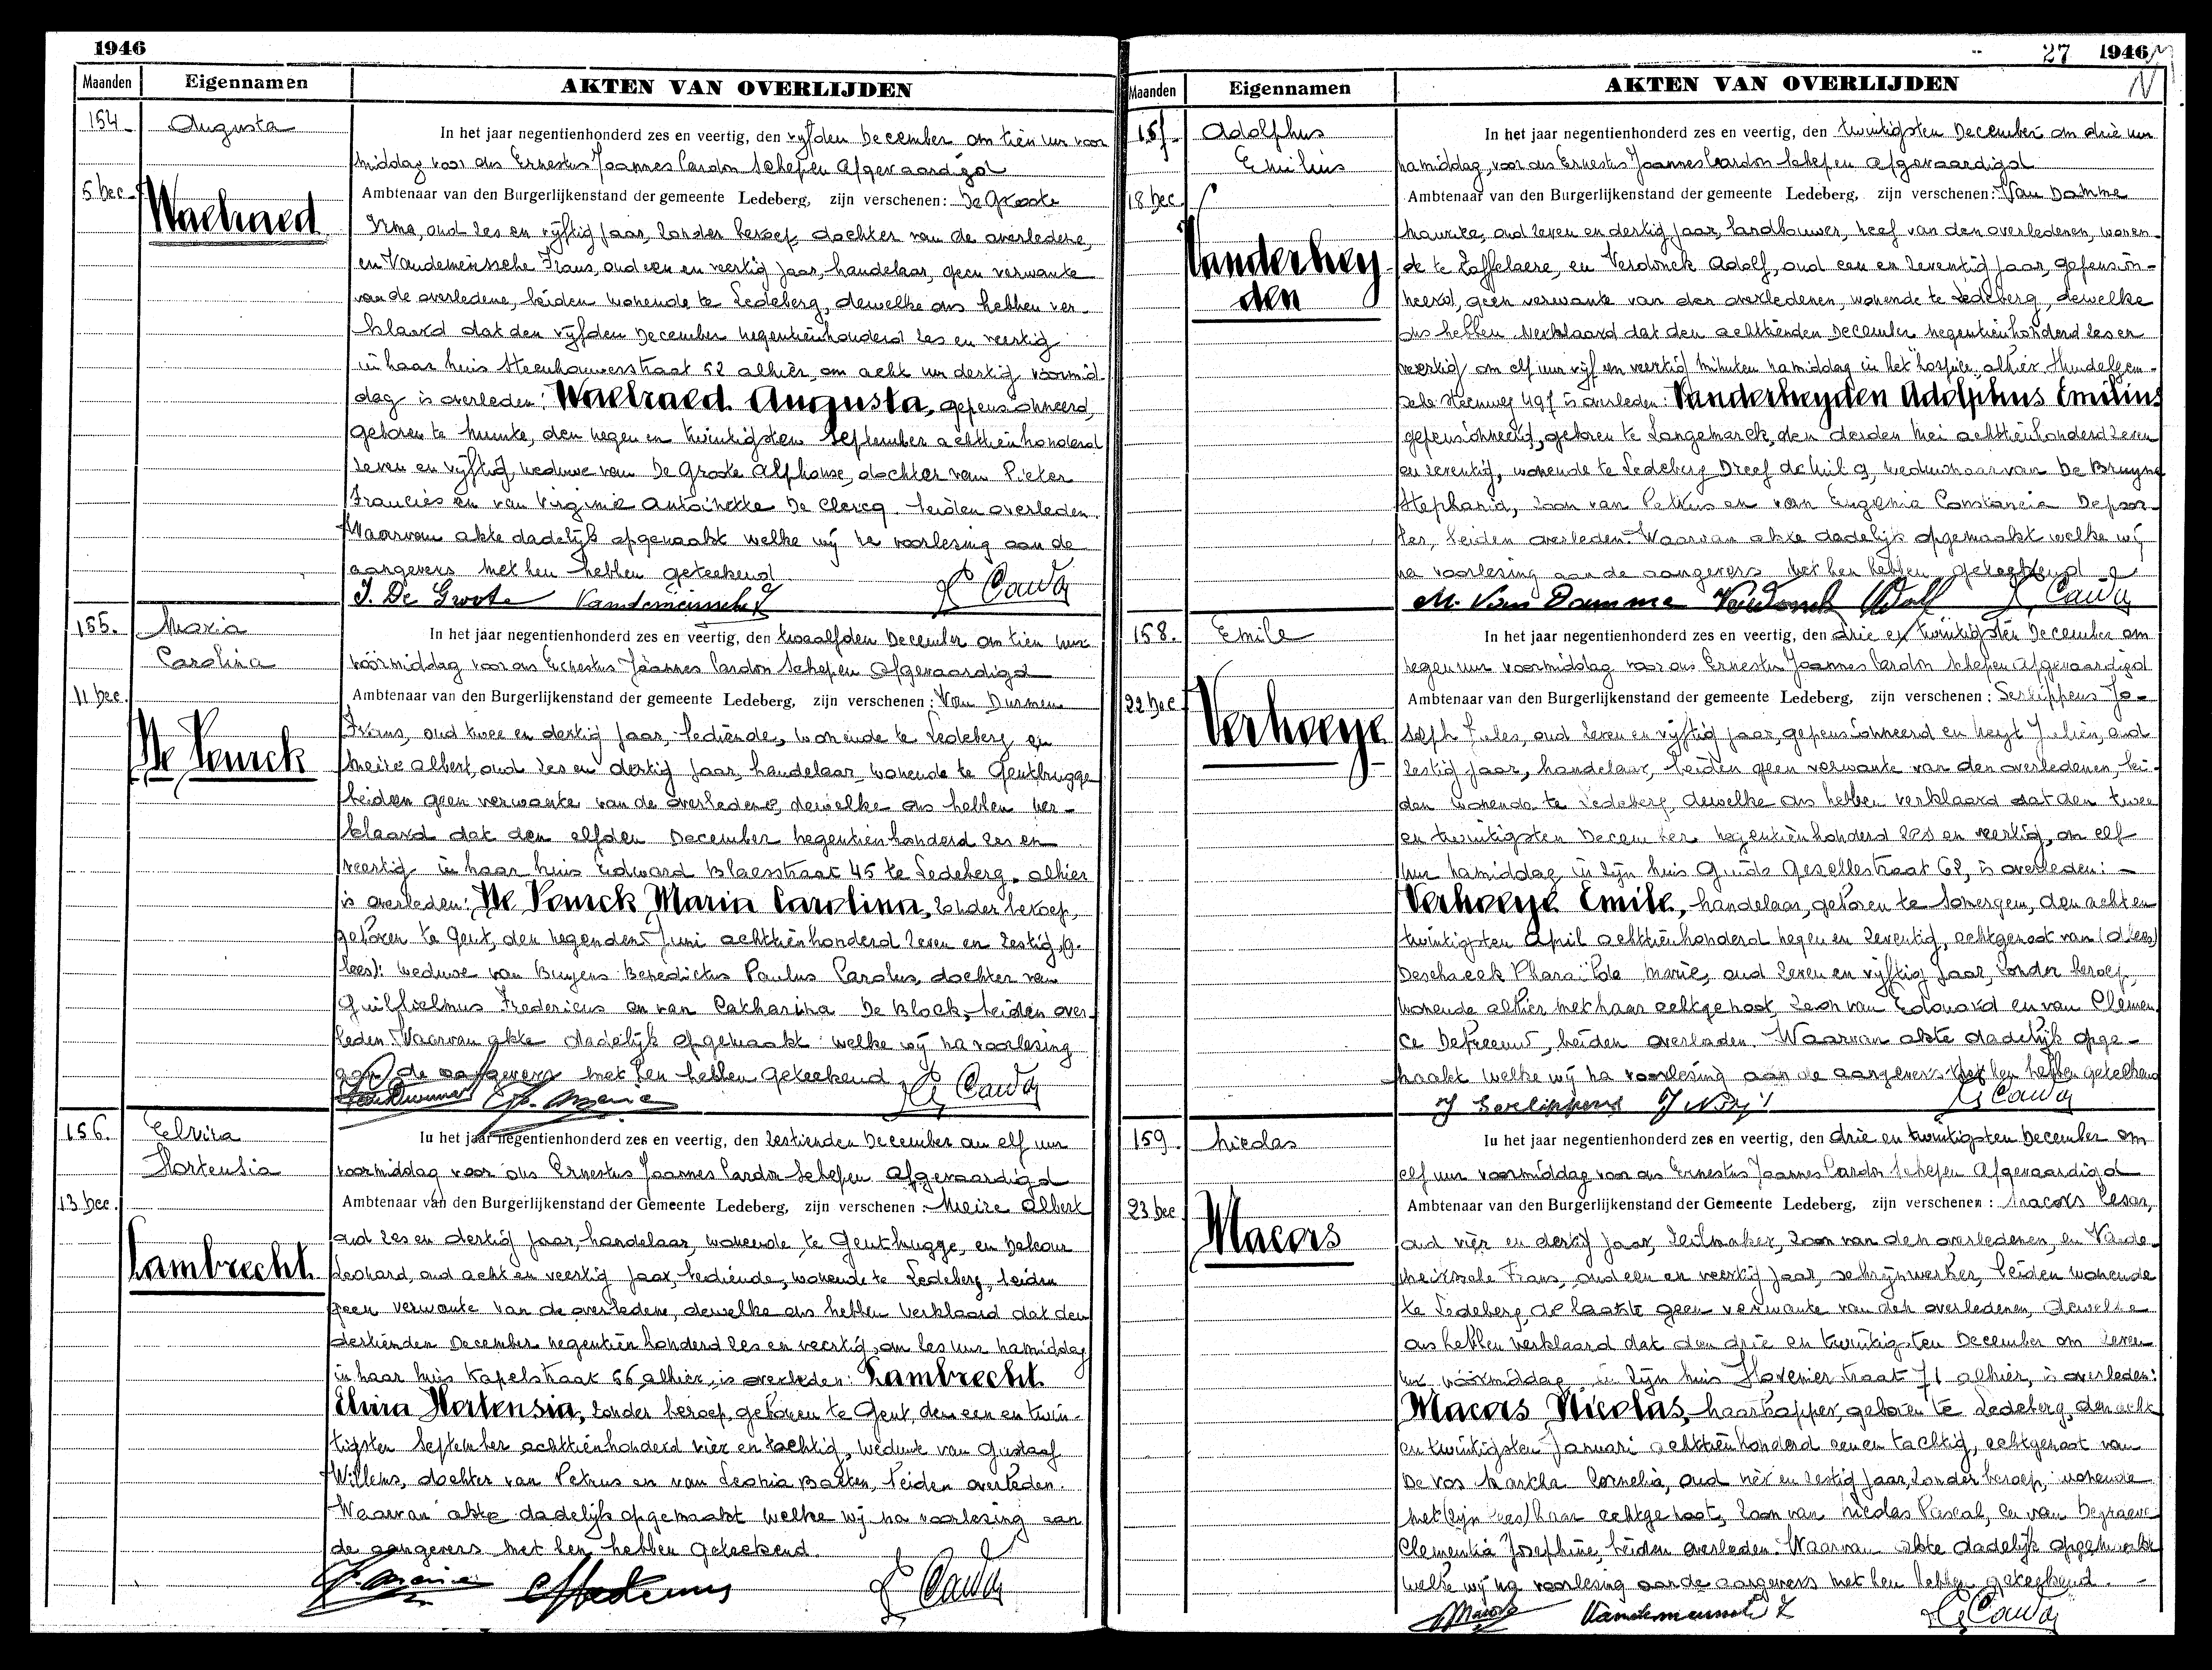 1946
Maanden Eigennamen AKTEN VAN OVERLIJDEN
154. Augusta
5 Dec. Waelraed
In het jaar negentienhonderd zes en veertig, den vyfden December om tien uur voor
middag voor ons Ernestus Joannes Cardon Schepen Afgevaardigd
Ambtenaar van den Burgerlijkenstand der gemeente Ledeberg, zijn verschenen: De Groote
Irma, oud zes en vyftig jaar, zonder beroep, dochter van de overledene,
en Vandemeirssche Frans, oud een en veertig jaar, handelaar, geen verwante
van de overledene, beiden wonende te Ledeberg, dewelke ons hebben ver-
klaard dat den vyfden December negentienhonderd zes en veertig
in haar huis Steenhouwerstraat 52 alhier, om acht uur dertig voormid-
dag is overleden: Waelraed Augusta, gepensionneerd,
geboren te Munte, den negen en twintigsten September achttienhonderd
zeven en vyftig, weduwe van De Groote Alphonse, dochter van Pieter
Francies en van Virginie Antoinette De Clercq, beiden overleden.
Waarvan akte dadelijk opgemaakt welke wij na voorlezing aan de
aangevers met hen hebben geteekend
I. De Groote Vandemeirssche F Cardon
155. Maria
Carolina
11 Dec. De Vynck
In het jaar negentienhonderd zes en veertig, den twaalfden December om tien uur
voormiddag voor ons Ernestus Joannes Cardon Schepen Afgevaardigd
Ambtenaar van den Burgerlijkenstand der gemeente Ledeberg, zijn verschenen: Van Durmen
Frans, oud twee en dertig jaar, bediende, wonende te Ledeberg en
Meire Albert, oud zes en dertig jaar, handelaar, wonende te Gentbrugge
beiden geen verwante van de overledene, dewelke ons hebben ver-
klaard dat den elfden December negentienhonderd zes en
veertig in haar huis Edward Blaesstraat 45 te Ledeberg, alhier
is overleden: Maria Carolina, zonder beroep,
geboren te Gent, den negenden Juni achttienhonderd zeven en zestig,
lees): weduwe van Buyens Benedictus Paulus Carolus, dochter van
Guilhelmus Fredericus en van Catharina De Block, beiden over-
leden. Waarvan akte dadelijk opgemaakt welke wij na voorlezing
aan de aangevers met hen hebben geteekend
Van Durmen A. Meire Cardon
156. Elvira
Hortensia
13 Dec. Lambrecht
In het jaar negentienhonderd zes en veertig, den zestienden December om elf uur
voormiddag voor ons Ernestus Joannes Cardon Schepen Afgevaardigd
Ambtenaar van den Burgerlijkenstand der Gemeente Ledeberg, zijn verschenen: Meire Albert
oud zes en dertig jaar, handelaar, wonende te Gentbrugge, en
Leonard, oud acht en veertig jaar, bediende, wonende te Ledeberg, beiden
geen verwante van de overledene, dewelke ons hebben verklaard dat den
dertienden December negentien honderd zes en veertig, om zes uur namiddag
in haar huis Kapelstraat 56 alhier, is overleden: Lambrecht
Elvira Hortensia, zonder beroep, geboren te Gent, den een en twin-
tigsten September achttienhonderd vier en tachtig, weduwe van Gustaaf
Willems, dochter van Petrus en van Leonia Baeten, beiden overleden.
Waarvan akte dadelijk opgemaakt welke wij na voorlezing aan
de aangevers met hen hebben geteekend.
A. Meire Cardon
27 1946
Maanden Eigennamen AKTEN VAN OVERLIJDEN
157. Adolphus
Emilius
18 Dec. Vanderhey-
den
In het jaar negentienhonderd zes en veertig, den twintigsten December om drie uur
namiddag, voor ons Ernestus Joannes Cardon Schepen Afgevaardigd
Ambtenaar van den Burgerlijkenstand der gemeente Ledeberg, zijn verschenen: Van Damme
Maurice, oud zeven en dertig jaar, landbouwer, neef van den overledenen, wonen-
de te Zaffelaere, en Verdonck Adolf, oud een en zeventig jaar, gepension-
neerd, geen verwante van den overledenen, wonende te Ledeberg, dewelke
ons hebben verklaard dat den achttienden December negentienhonderd zes en
veertig om elf uur vijf en veertig minuten namiddag in het hospice alhier Hundelgem-
sche Steenweg 497 is overleden: Vanderheyden Adolphus Emilius
gepensionneerd, geboren te Langemarck, den derden Mei achttienhonderd zeven
en zeventig, wonende te Ledeberg Dreef de hul 9, weduwnaar van De Bruyne
Stephania, zoon van Petrus en van Eugenia Constancia Depoor-
ter, beiden overleden. Waarvan akte dadelijk opgemaakt welke wij
na voorlezing aan de aangevers met hen hebben geteekend
M. Van Damme Verdonck Adolf Cardon
158. Emile
22 Dec. Verhoeye
In het jaar negentienhonderd zes en veertig, den drie en twintigsten December om
negen uur voormiddag voor ons Ernestus Joannes Cardon Schepen Afgevaardigd
Ambtenaar van den Burgerlijkenstand der gemeente Ledeberg, zijn verschenen: Serlippens Jo-
seph Jules, oud zeven en vyftig jaar, gepensionneerd en Neyt Julien, oud
zestig jaar, handelaar, beiden geen verwante van den overledenen, bei-
den wonende te Ledeberg, dewelke ons hebben verklaard dat den twee
en twintigsten December negentienhonderd zes en veertig, om elf
uur namiddag in zijn huis Guido Gezellestraat 62, is overleden: —
Verhoeye Emile, handelaar, geboren te Somergem, den acht en
twintigsten April achttienhonderd negen en zeventig, echtgenoot van (
Deschaeck Pharaïlde Marie, oud zeven en vyftig jaar, zonder beroep,
wonende alhier met haar echtgenoot, zoon van Edouard en van Clemen-
ce Defreeuw, beiden overleden. Waarvan akte dadelijk opge-
maakt welke wij na voorlezing aan de aangevers met hen hebben geteekend
J Serlippens J Neyt Cardon
159. Nicolas
23 Dec Macors
In het jaar negentienhonderd zes en veertig, den drie en twintigsten December om
elf uur voormiddag voor ons Ernestus Joannes Cardon Schepen Afgevaardigd
Ambtenaar van den Burgerlijkenstand der Gemeente Ledeberg, zijn verschenen: Macors Cesar,
oud vier en dertig jaar, zeilmaker, zoon van den overledenen, en Vande-
meirssche Frans, oud een en veertig jaar, schrijnwerker, beiden wonende
te Ledeberg, de laatste geen verwante van den overledenen, dewelke
ons hebben verklaard dat den drie en twintigsten December om zeven
uur voormiddag in zijn huis Hovenierstraat 71 alhier, is overleden:
Macors Nicolas, haarkapper, geboren te Ledeberg, den acht
en twintigsten Januari achttienhonderd een en tachtig, echtgenoot van
De Vos Martha Cornelia, oud vier en zestig jaar, zonder beroep, wonende
met (zijn lees) haar echtgenoot, zoon van Nicolas Pascal, en van Degraeve
Clementia Josephine, beiden overleden. Waarvan akte dadelijk opgemaakt
welke wij na voorlezing aan de aangevers met hen hebben geteekend. —
Macors Vandemeirssche F Cardon